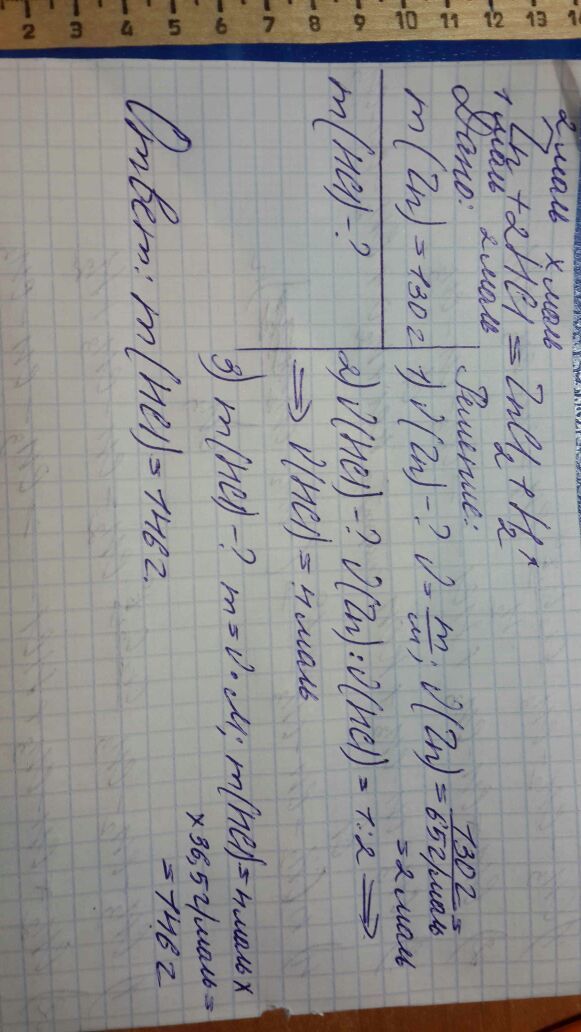 2 3 4 5 6 7 8 9 10 11 12 13 14
2 моль х моль
Zn + 2HCl = ZnCl₂ + H₂↑
1 моль 2 моль
Дано:
m(Zn) = 130г
m(HCl) - ?
Решение:
1) ν(Zn) - ? ν = m/M; ν(Zn) = 130г/65г/моль =
= 2 моль
2) ν(HCl) - ? ν(Zn) : ν(HCl) = 1:2 ⟹
⟹ ν(HCl) = 4 моль
3) m(HCl) - ? m = ν · M; m(HCl) = 4 моль ×
× 36,5 г/моль =
= 146г
Ответ: m(HCl) = 146г.